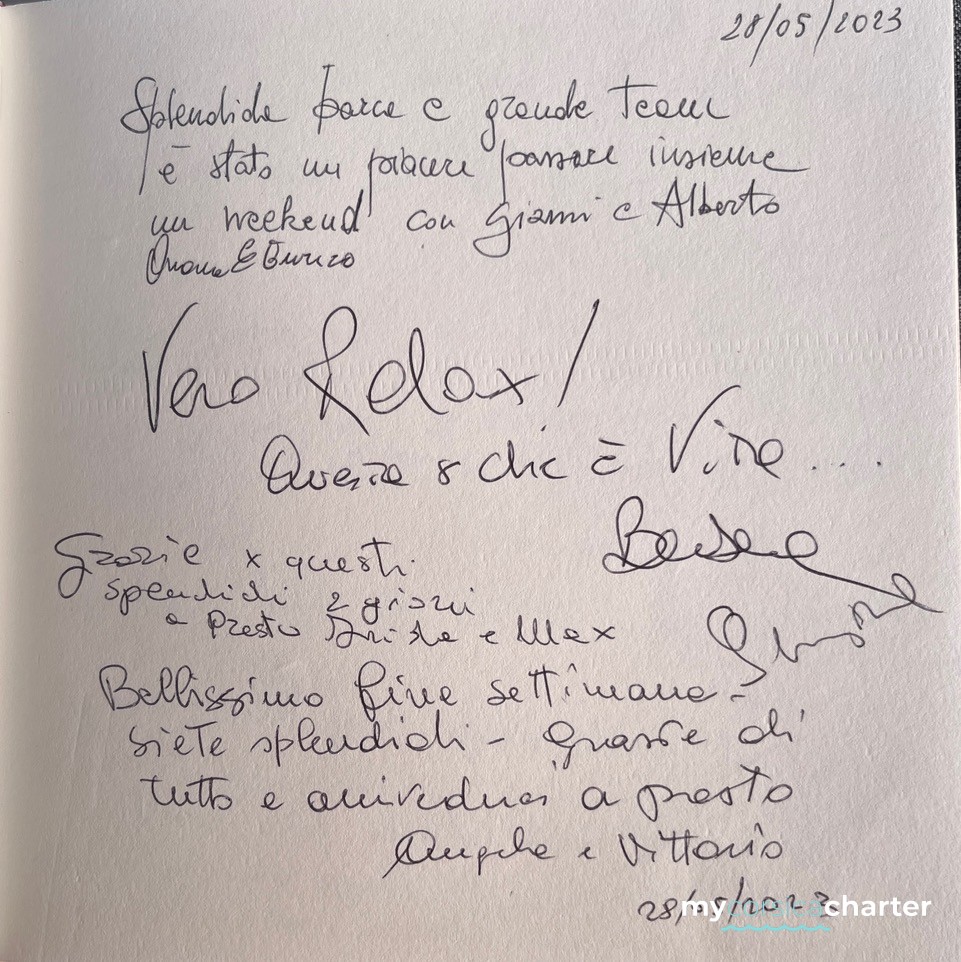 28/05/2023
Splendida barca e grande Team
è stato un piacere passare insieme
un weekend con Gianni e Alberto
Vero Relax!
Questa è che è Vita....
Grazie x questi
splendidi 2 giorni
a Presto e Max
Bellissimo fine settimana -
siete splendidi - grazie di
tutto e arrivederci a presto
Angela e Vittorio
28/05/2023
mycharter